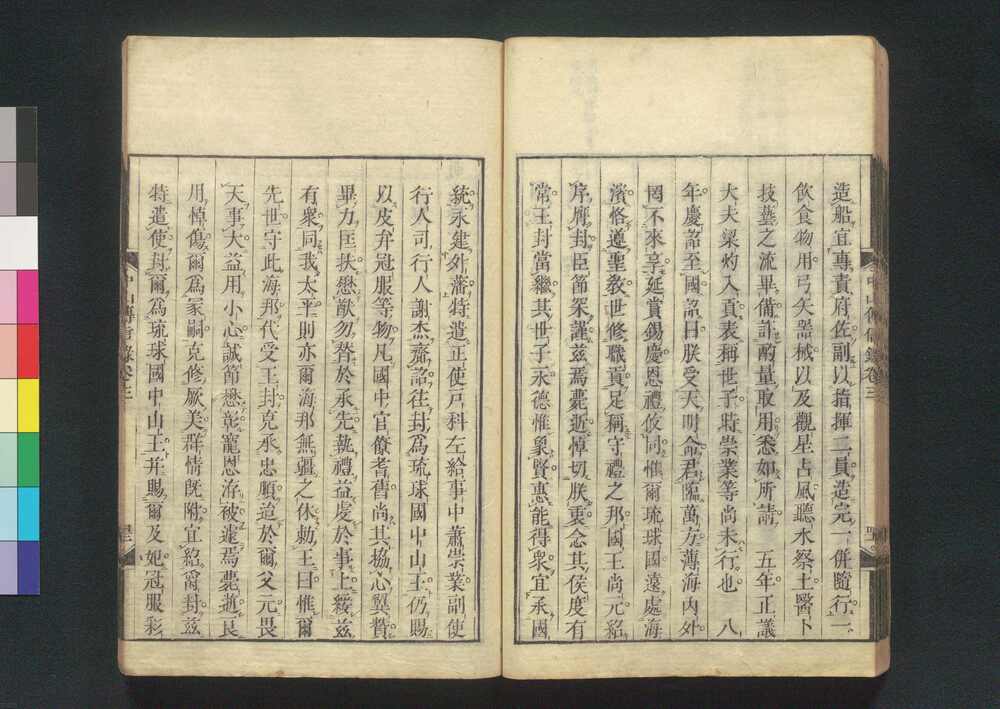 造船宜專責府佐副以指揮二員造完一併隨行一
飲食物用弓矢器械以及觀星占風聽水察土醫卜
技藝之流畢備計酌量取用悉如所請　五年正議
大夫梁灼入貢表稱世子時崇業等尚未行也　八
年慶詔至國詔曰朕受天明命君臨萬方薄海內外
罔不來享延賞錫慶恩禮攸同惟爾琉球國遠處海
濱恪遵聖教世修職貢足稱守禮之邦國王尚元紹
序膺封臣節罙謹茲焉薨逝悼切朕衷念其侯度有
常王封當繼其世子永德惟象賢惠能得衆宜承國
中山傳信錄卷三
統永建外藩特遣正使戶科左給事中蕭崇業副使
行人司行人謝杰齎詔往封爲琉球國中山王仍賜
以皮弁冠服等物凡國中官僚耆舊尚其協心翼贊
畢力匡扶懋猷勿替於承先執禮益虔於事上綏茲
有衆同我太平則亦爾海邦無疆之休勅王曰惟爾
先世守此海邦代受王封克承忠順迨於爾父元畏
天事大益用小心誠節懋彰寵恩洊被遽焉薨逝良
用悼傷爾爲冢嗣克修厥美群情既附宜紹爵封茲
特遣使封爾爲琉球國中山王并賜爾及妃冠服彩
中山傳信錄卷三